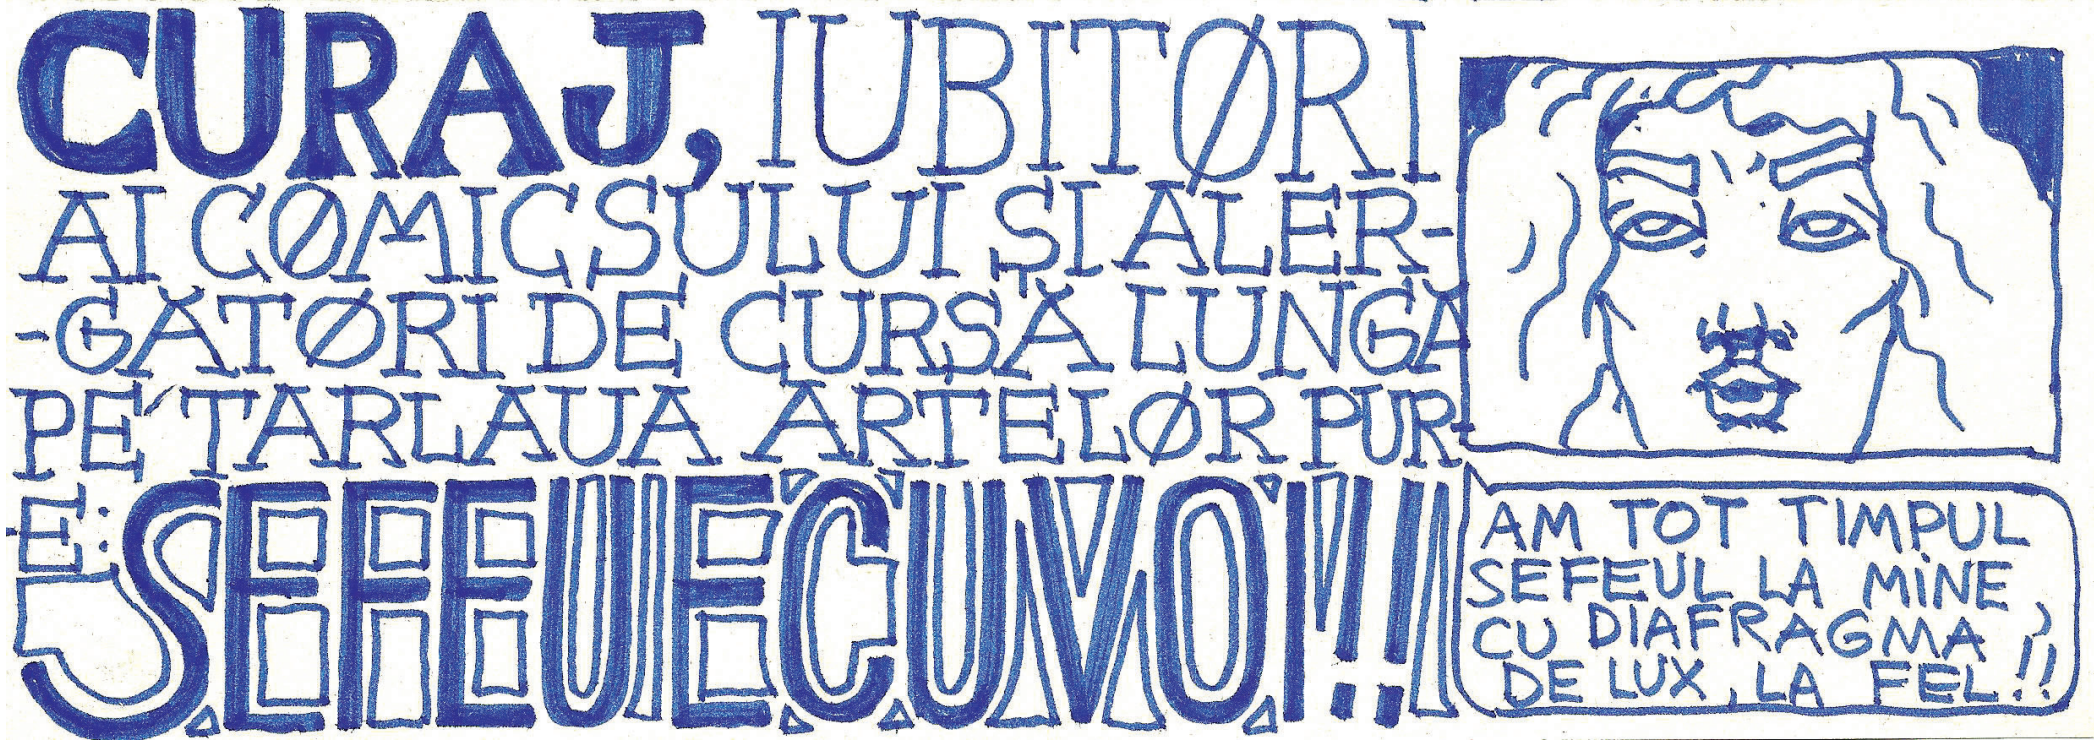 CURAJ, IUBITØRI
AI CØMICSULUI ȘI ALER-
-GĂTØRI DE CURSĂ LUNGĂ
PE TARLAUA ARTELØR PUR-
-E: SEFEUECUVOI!!!
AM TOT TIMPUL
SEFEUL LA MINE,
CU DIAFRAGMA
DE LUX, LA FEL!!